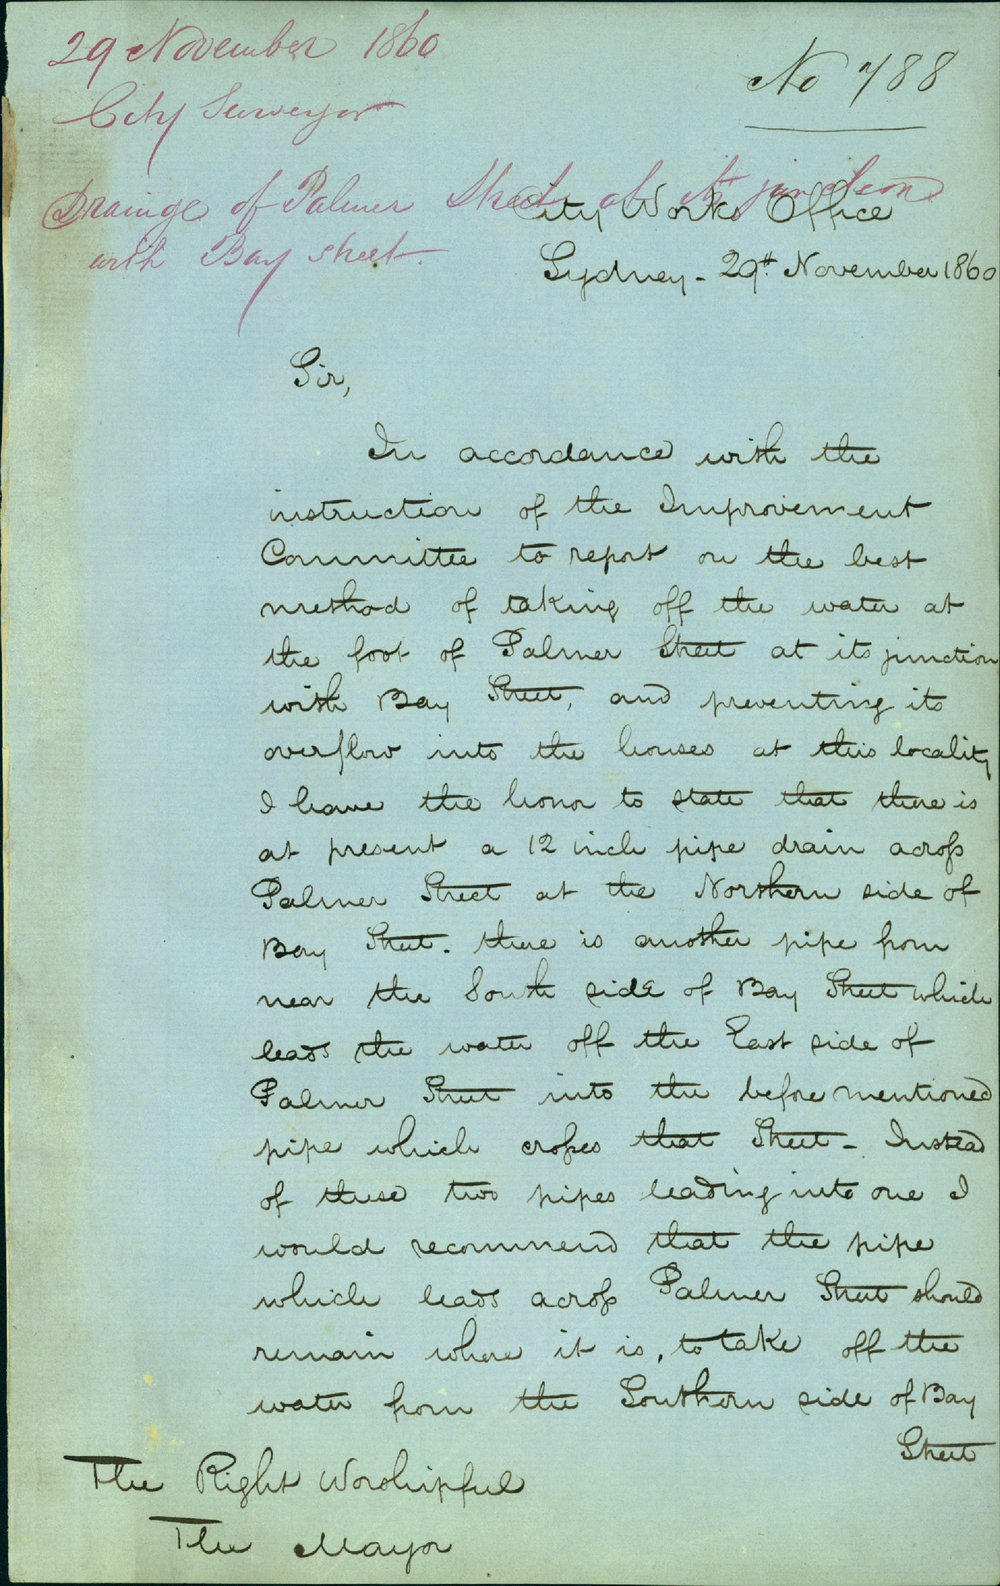 29 November 1860
No 788
City Surveyor
Drainage of Palmer Street at its junction
with Bay street.
City Works Office
Sydney - 29th November 1860
Sir,
In accordance with the
instruction of the Improvement
Committee to report on the best
method of taking off the water at
the foot of Palmer Street at its junction
with Bay Street, and preventing its
overflow into the houses at this locality
I have the honor to state that there is
at present a 12 inch pipe drain across
Palmer Street at the Northern side of
Bay Street. there is another pipe from
near the South side of Bay Street which
leads the water off the East side of
Palmer Street into the before mentioned
pipe which crosses that Street - Instead
of these two pipes leading into one I
would recommend that the pipe
which leads across Palmer Street should
remain where it is, to take off the
water from the Southern side of Bay
Street
The Right Worshipful
The Mayor